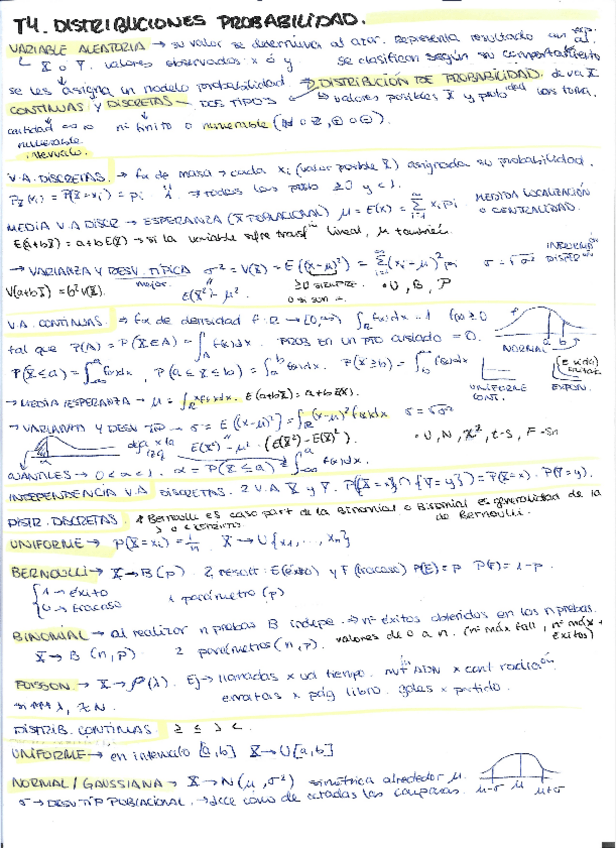 T4. DISTRIBUCIONES PROBABILIDAD.
VARIABLE ALEATORIA → su valor se determina al azar. Representa resultado un exp. al.
X o Y. valores observados x ó y se clasifican según su comportamiento
se les asigna un modelo probabilidad. → DISTRIBUCIÓN DE PROBABILIDAD de va X
CONTINUAS Y DISCRETAS → DOS TIPOS → valores posibles X y prob dad los toma.
cantidad ∞ o no numerable. ni finito o numerable (N o Z, ⊕ o ⊖).
intervalo.
V.A. DISCRETAS. → fx de masa → cada xi (valor posible X) asignada su probabilidad.
Px(xi) = P(X=xi) = pi → todas las prob ≥0 y <1.
MEDIA V.A DISCR → ESPERANZA (X POBLACIONAL) μ = E(x) = Σ xi pi MEDIDA LOCALIZACIÓN O CENTRALIDAD.
E(a+bX) = a+b E(X) → si la variable sufre transf ón lineal, μ también.
→ VARIANZA Y DESV. TÍPICA σ² = V(X) = E((x-μ)²) = Σ(xi-μ)² pi σ = √σ²
V(a+bX) = b²V(X). mejor. E(X²) - μ² ≥0 SIEMPRE. • U, B, P
V.A. CONTINUAS. → fx de densidad f: R → [0,∞) ∫R f(x)dx = 1 f(x) ≥ 0
tal que P(A) = P(X∈A) = ∫A f(x)dx. PROB EN UN PTO aislado = 0. NORMAL
P(X≤a) = ∫ f(x)dx, P(a≤X≤b) = ∫ f(x)dx. P(X≥b) = ∫ f(x)dx
UNIFORME CONT. EXPON.
→ MEDIA/ESPERANZA → μ = ∫R x f(x)dx. E(a+bX) = a+bE(X).
→ VARIANZA Y DESV TÍP → σ = E((x-μ)²) = ∫R (x-μ)² f(x)dx σ = √σ²
deja x la izq E(X²) - μ² • U, N, X², t-S, F-Sn
CUANTILES → 0<α<1. α = P(X≤a) = ∫ f(x)dx.
INDEPENDENCIA V.A DISCRETAS. 2 V.A X y Y. P({X=x}∩{Y=y}) = P(X=x). P(Y=y).
DISTR. DISCRETAS. * Bernoulli es caso part de la Binomial o Binomial es generalidad de la de Bernoulli.
UNIFORME → P(X=xi) = 1/n X → U{x1, ..., xn}
BERNOULLI → X → B(p) 2 result: E (éxito) y F (fracaso) P(E)=p P(F)=1-p.
1 → éxito
0 → fracaso 1 parámetro (p)
BINOMIAL → al realizar n prubas B indepe. → nº éxitos obtenidos en las n prubas.
X → B (n,p) 2 parámetros (n,p). valores de 0 a n. (nº máx fall, nº máx éxitos)
POISSON → X → P(λ). Ej → llamadas x ud tiempo. mut ADN x cant radia ón
erratas x pág libro. goles x partido.
DISTRIB. CONTINUAS. ≥ ≤ > <.
UNIFORME → en intervalo [a,b] X → U[a,b]
NORMAL / GAUSSIANA → X → N(μ, σ²) simétrica alrededor μ.
σ → DESV TÍP POBLACIONAL. → dice cómo de
μ-σ μ μ+σ